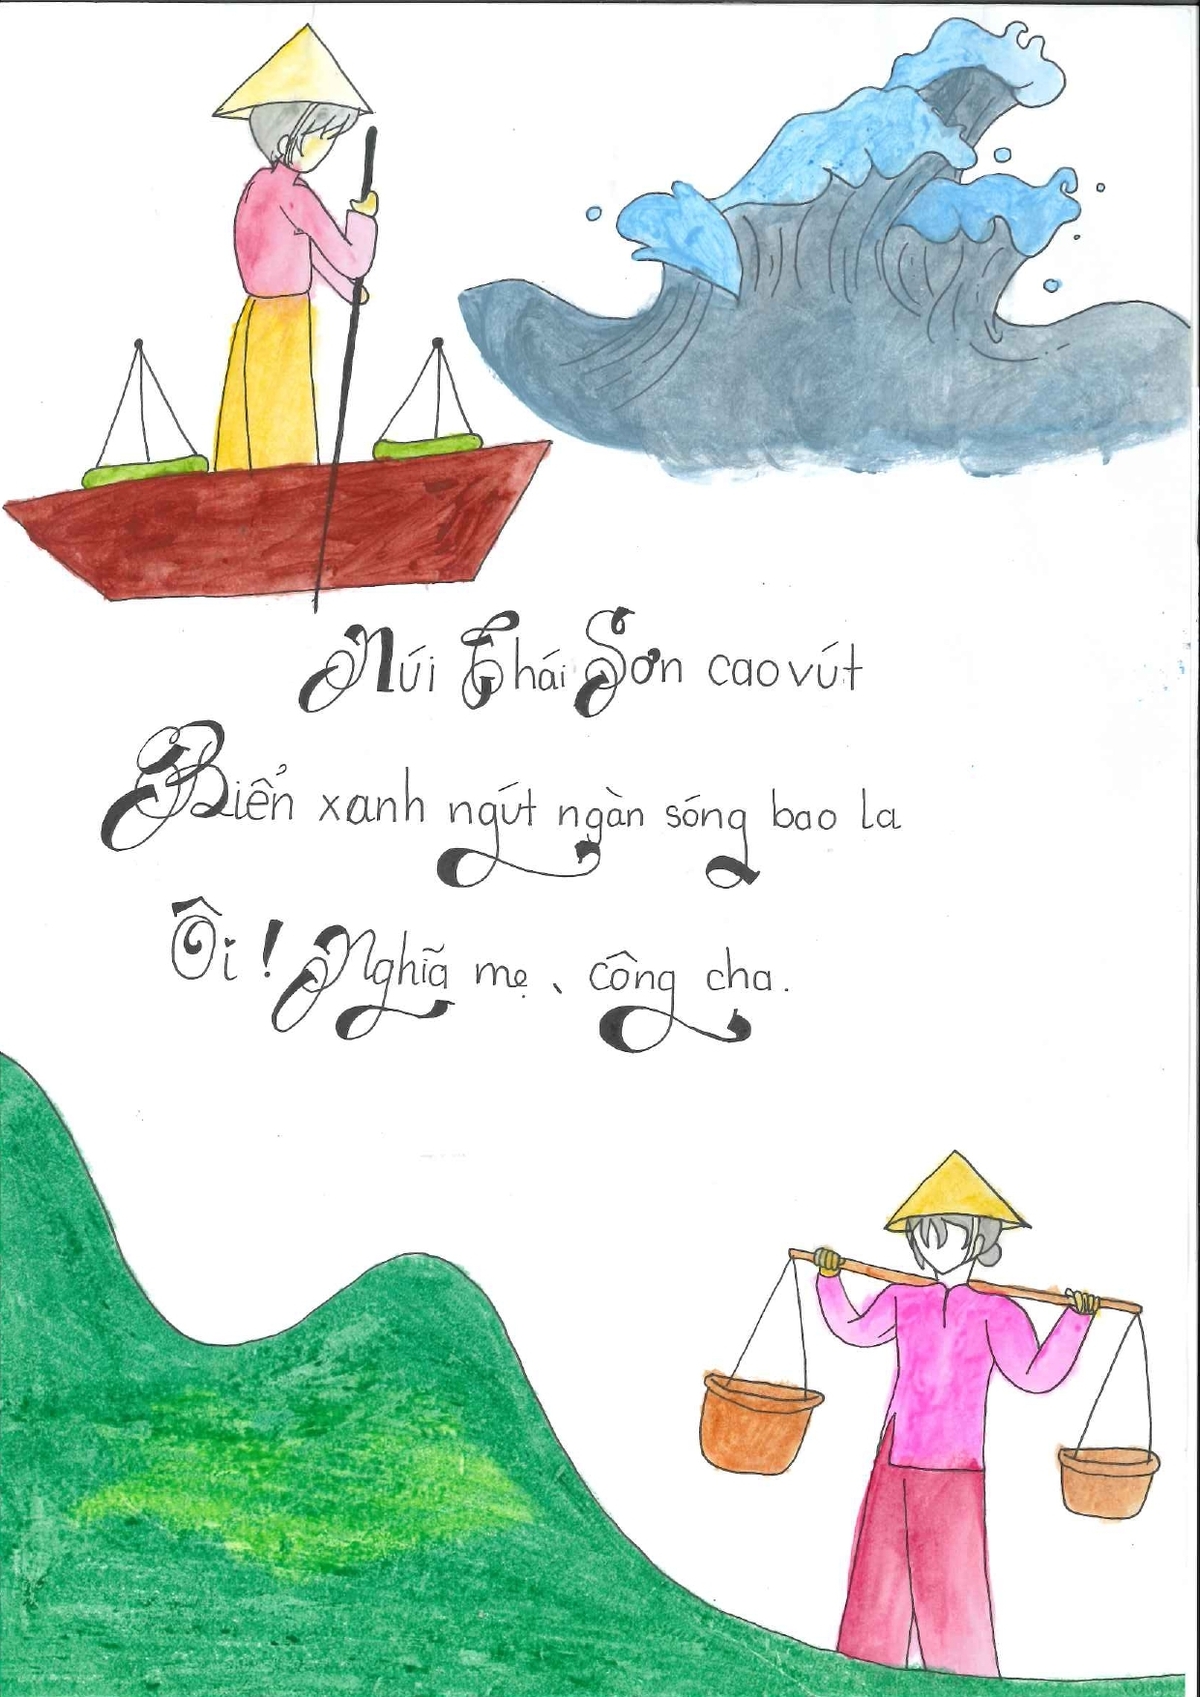 Núi Thái Sơn cao vút
Biển xanh ngút ngàn sóng bao la
Ôi! Nghĩa mẹ、công cha.